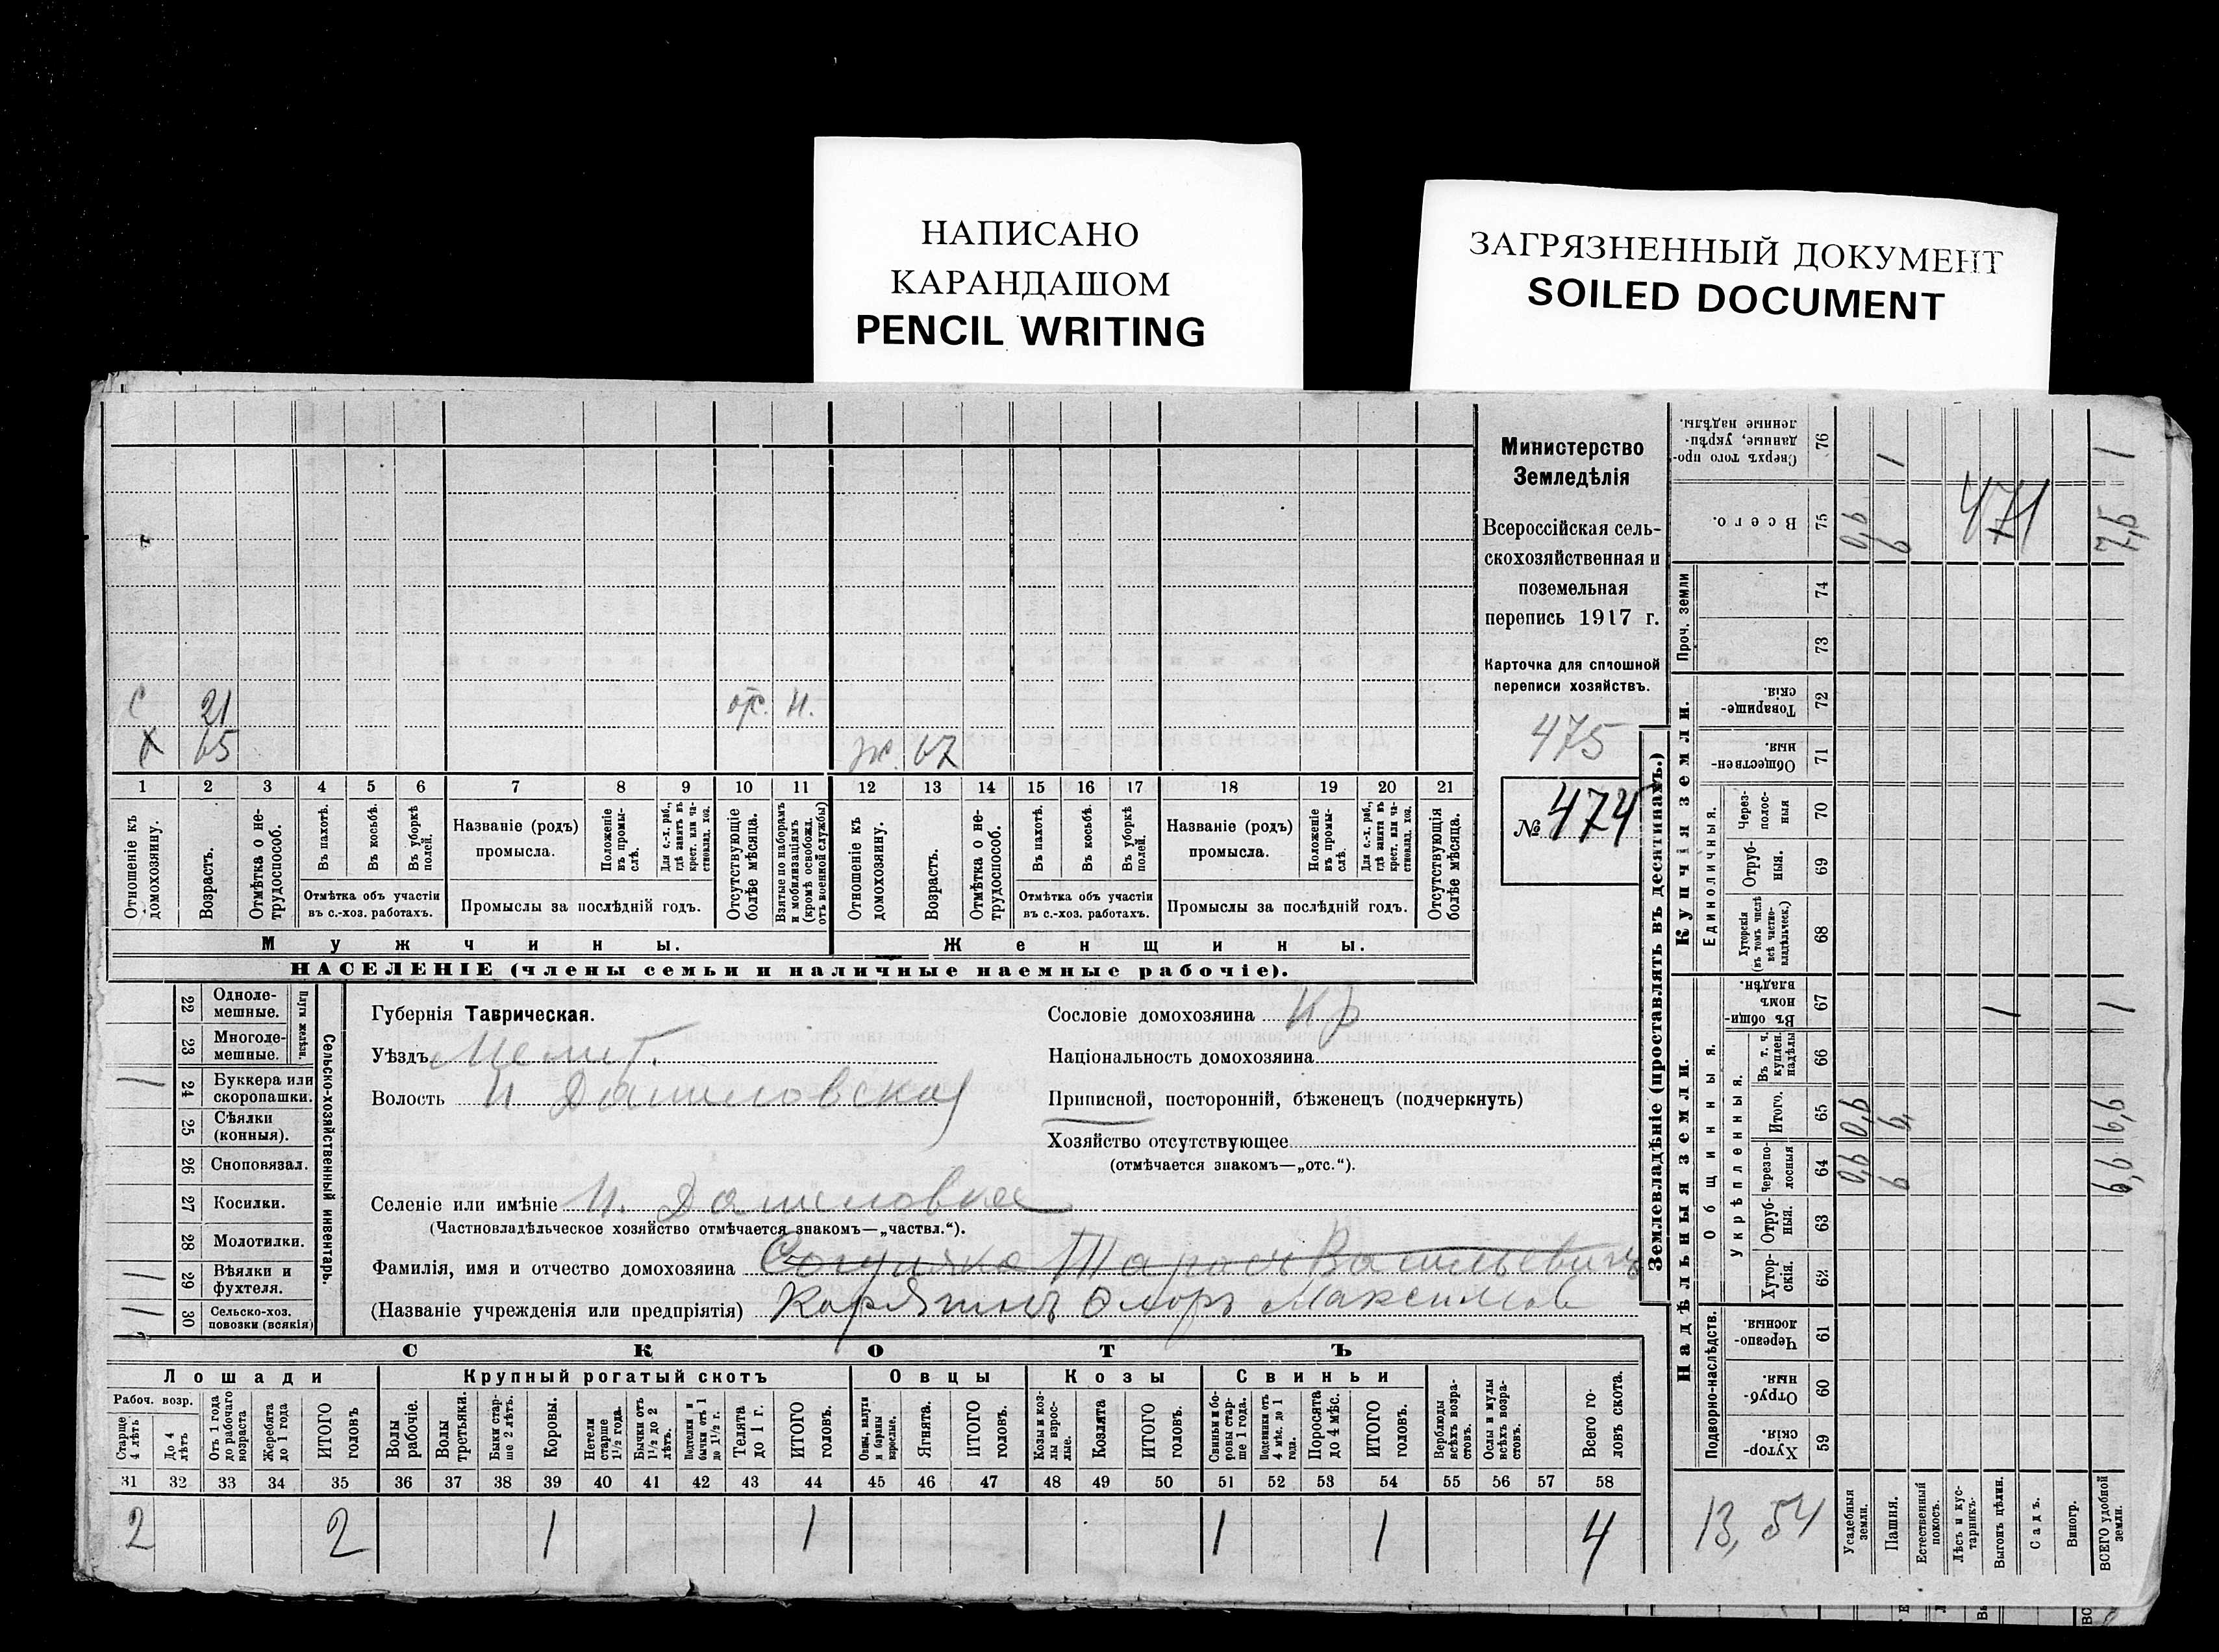 НАПИСАНО
КАРАНДАШОМ
PENCIL WRITING
ЗАГРЯЗНЕННЫЙ ДОКУМЕНТ
SOILED DOCUMENT
С 21 отс. н.
Х 65 ж. 67
1 2 3 4 5 6 7 8 9 10 11 12 13 14 15 16 17 18 19 20 21
Отношеніе къ домохозяину.
Возрастъ.
Отмѣтка о не-трудоспособ.
Въ пахотѣ.
Въ косьбѣ.
Въ уборкѣ полей.
Отмѣтка объ участіи
въ с.-хоз. работахъ.
Названіе (родъ)
промысла.
Положеніе въ промы-слѣ.
Для с.-х. раб., гдѣ занятъ въ крест. или ча-стновлад. хоз.
Промыслы за послѣдній годъ.
Отсутствующіе болѣе мѣсяца.
Взятые по наборамъ и мобилизаціямъ (кромѣ освобожд. отъ военной службы)
Отношеніе къ домохозяину.
Возрастъ.
Отмѣтка о не-трудоспособ.
Въ пахотѣ.
Въ косьбѣ.
Въ уборкѣ полей.
Отмѣтка объ участіи
въ с.-хоз. работахъ.
Названіе (родъ)
промысла.
Положеніе въ промы-слѣ.
Для с.-х. раб., гдѣ занята въ крест. или ча-стновлад. хоз.
Промыслы за послѣдній годъ.
Отсутствующія болѣе мѣсяца.
Мужчины.
Женщины.
НАСЕЛЕНІЕ (члены семьи и наличные наемные рабочіе).
Министерство
Земледѣлія
Всероссійская сель-
скохозяйственная и
поземельная
перепись 1917 г.
Карточка для сплошной
переписи хозяйствъ.
475
№ 474
22 Одноле-мешные.
23 Многоле-мешные.
Плуги желѣзн.
24 Буккера или скоропашки.
25 Сѣялки (конныя).
26 Сноповязал.
27 Косилки.
28 Молотилки.
29 Вѣялки и фухтеля.
30 Сельско-хоз. повозки (всякія)
Сельско-хозяйственный инвентарь.
Губернія Таврическая.
Уѣздъ Мелит.
Волость Н Даниловская
Селеніе или имѣніе Н. Даниловка
(Частновладѣльческое хозяйство отмѣчается знакомъ—„частвл.“).
Фамилія, имя и отчество домохозяина Тарасъ Васильевичъ
(Названіе учрежденія или предпріятія) Максимов
Сословіе домохозяина кр
Національность домохозяина
Приписной, посторонній, бѣженецъ (подчеркнуть)
Хозяйство отсутствующее
(отмѣчается знакомъ—„отс.“).
СКОТЪ
Лошади
Крупный рогатый скотъ
Овцы
Козы
Свиньи
Рабоч. возр.
Старше 4 лѣтъ
До 4 лѣтъ
Отъ 1 года до рабочаго возраста
Жеребята до 1 года
ИТОГО головъ
Волы рабочіе.
Волы третьяки.
Быки стар-ше 2 лѣтъ.
Коровы.
Нетели старше 1½ года.
Бычки отъ 1½ до 2 лѣтъ.
Подтелки и бычки отъ 1 до 1½ г.
Телята до 1 г.
ИТОГО головъ.
Овцы, валухи и бараны взрослые.
Ягнята.
ИТОГО головъ.
Козы и коз-лы взрос-лые.
Козлята
ИТОГО головъ.
Свиньи и бо-ровы стар-ше 1 года.
Подсвинки отъ 4 мѣс. до 1 года.
Поросята до 4 мѣс.
ИТОГО головъ.
Верблюды всѣхъ возра-стовъ.
Ослы и мулы всѣхъ возра-стовъ.
Всего го-ловъ скота.
31 32 33 34 35 36 37 38 39 40 41 42 43 44 45 46 47 48 49 50 51 52 53 54 55 56 57 58
2 2 1 1 1 1 4
Землевладѣніе (проставлять въ десятинахъ.)
Надѣльныя земли.
Купчія земли.
Подворно-наслѣдств.
Общинныя.
Укрѣпленныя.
Единоличныя.
Проч. земли
59 Хутор-скія.
60 Отруб-ныя.
61 Черезпо-лосныя.
62 Хутор-скія.
63 Отруб-ныя.
64 Черезпо-лосныя
65 Итого.
66 Въ т. ч. куплен. надѣлы
67 Въ общи-номъ владѣн.
68 Хуторскія (въ томъ числѣ всѣ частно-владѣльческ.)
69 Отруб-ныя.
70 Через-полос-ныя
71 Обществен-ныя.
72 Товарище-скія.
73
74
75 Всего.
76 Сверхъ того про-данные, укрѣп-ленные надѣлы.
471
13,54
Усадебныя земли.
Пашня.
Естественный покосъ.
Лѣсъ и кус-тарникъ.
Выгонъ цѣлин.
Садъ.
Виногр.
ВСЕГО удобной земли.